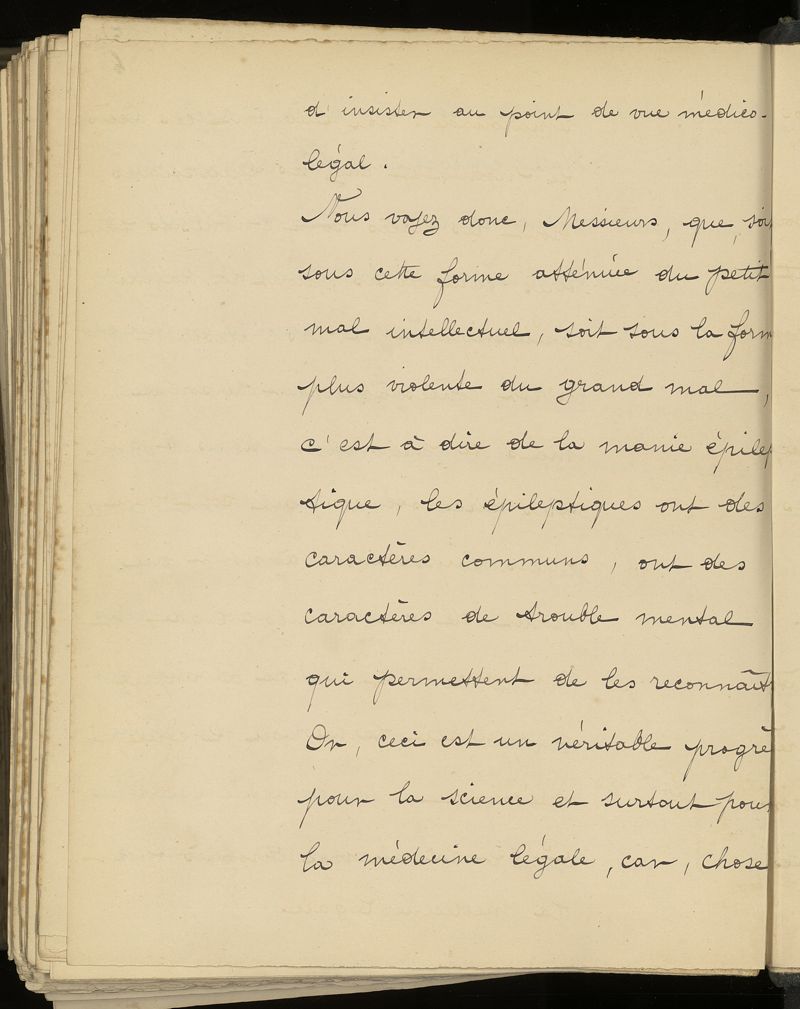 d'insister au point de vue médico-
légal.
Nous voyez donc, Messieurs, que, soit
sous cette forme atténuée du petit
mal intellectuel, soit sous la form
plus violente du grand mal,
c'est à dire de la manie épilep
tique, les épileptiques ont des
caractères communs, ont des
caractères de trouble mental
qui permettent de les reconnaît
Or, ceci est un véritable progrè
pour la science et surtout pour
la médecine légale, car, chose